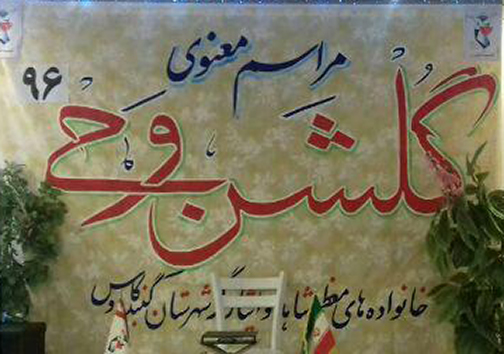 مراسم معنوی
۹۶
گلشن وحی
خانواده های معظم شاهد و ایثارگر شهرستان گنبدکاووس